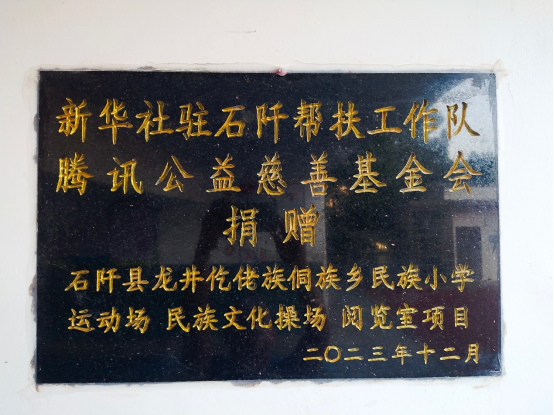 新华社驻石阡帮扶工作队
腾讯公益慈善基金会
捐赠
石阡县龙井仡佬族侗族乡民族小学
运动场 民族文化操场 阅览室项目
二〇二三年十二月